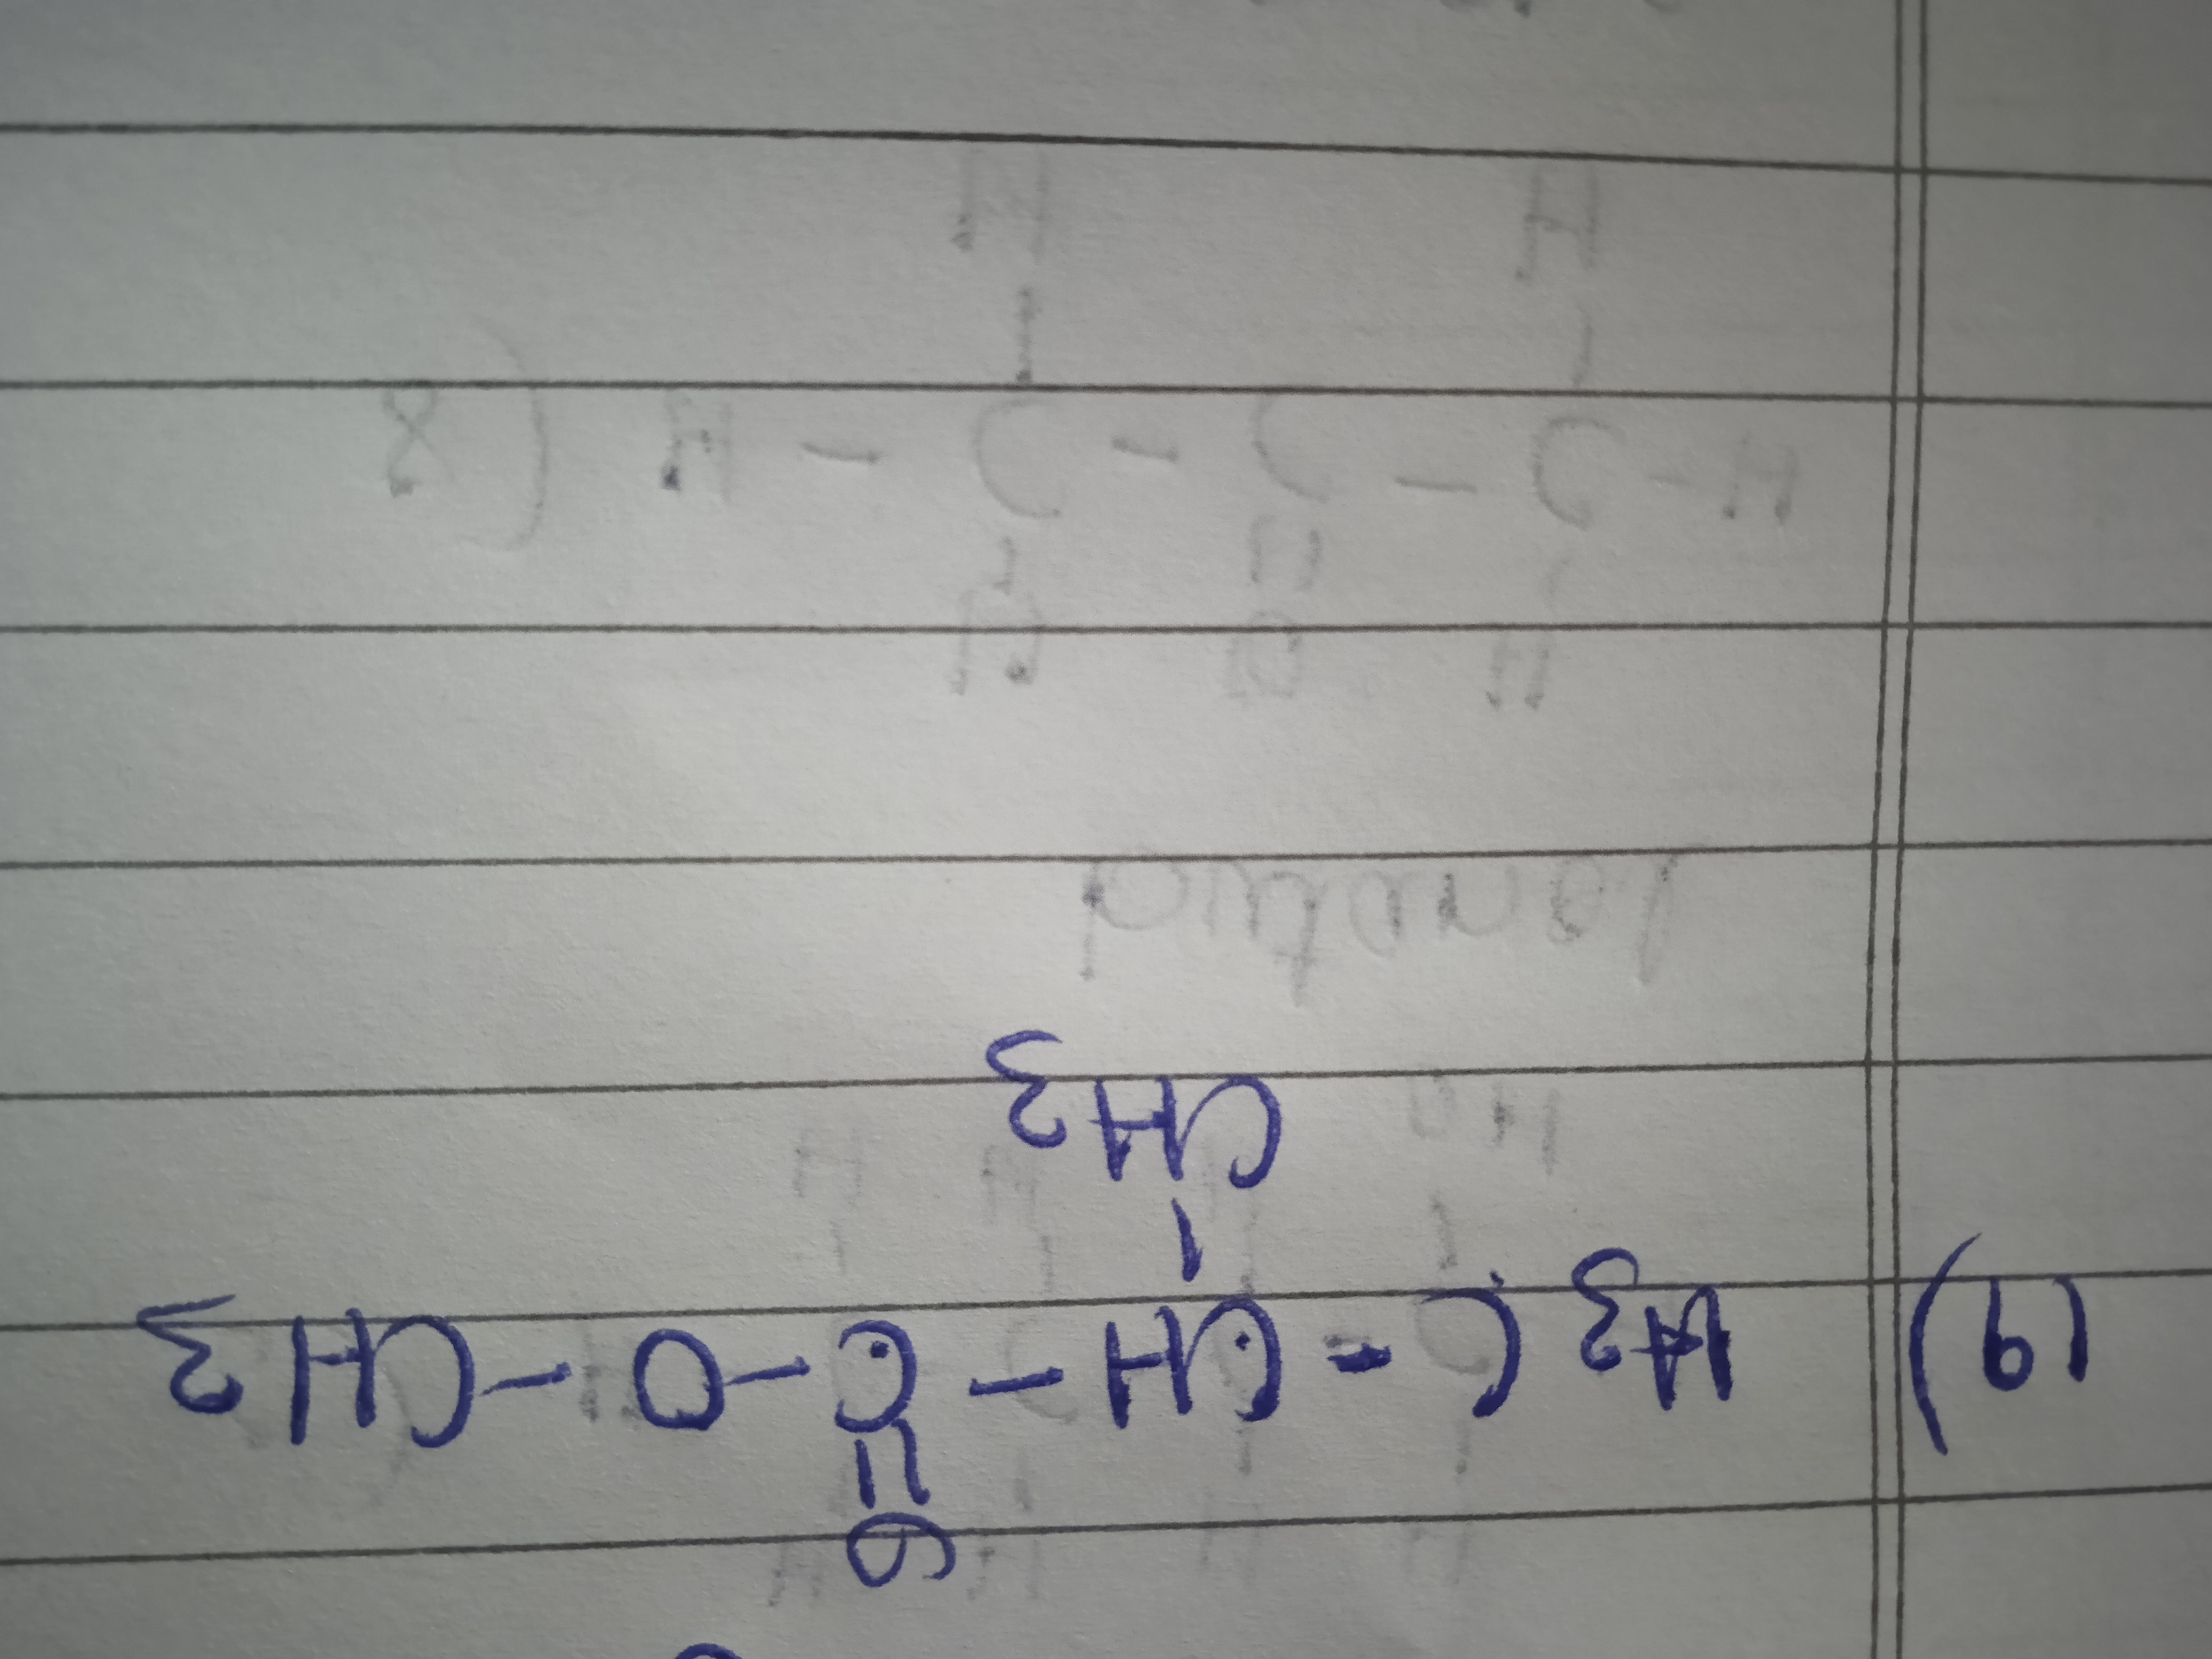 O
||
19) H3C - CH - C - O - CH3
|
CH3